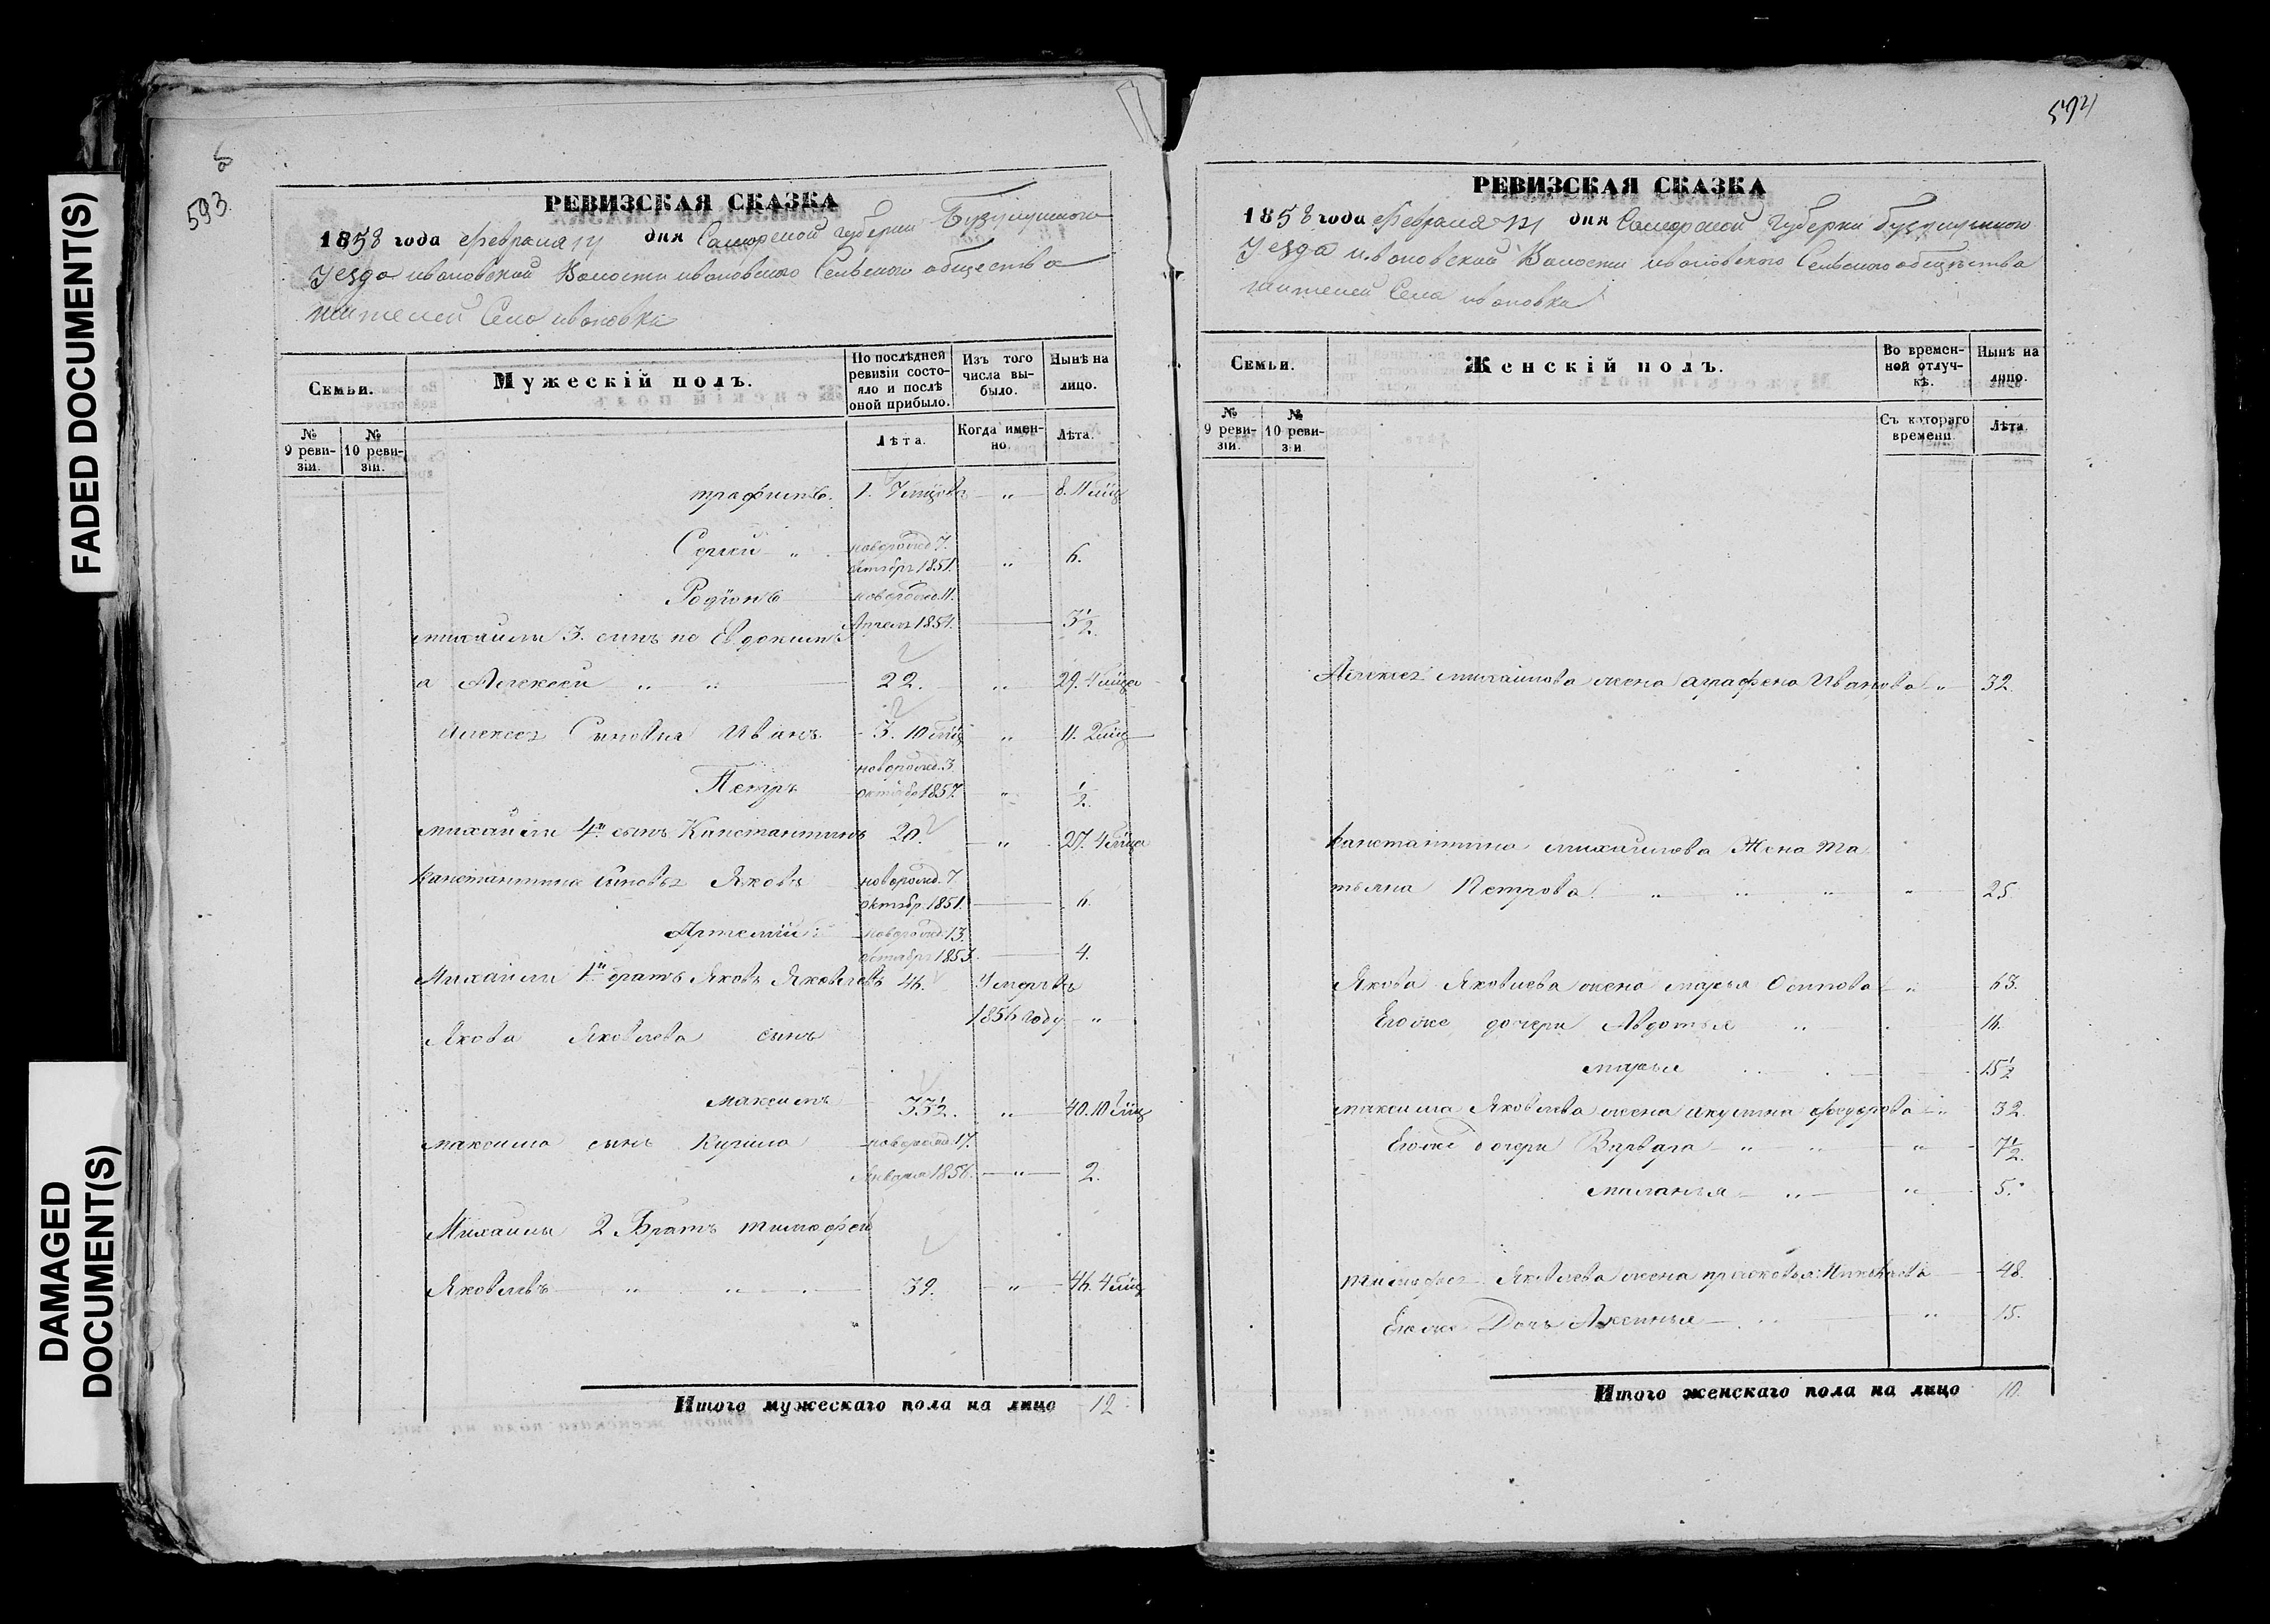 FADED DOCUMENT(S)
DAMAGED
DOCUMENT(S)
593.
РЕВИЗСКАЯ СКАЗКА
1858 года февраля дня Самарской Губерни Бузулушного
Уезда ивановской Волости ивановского Сельского общества
жителей Села ивановки
Семьи.
Мужескій полъ.
По послѣдней
ревизіи состо-
яло и послѣ
оной прибыло.
Изъ того
числа вы-
было.
Нынѣ на
лицо.
№
9 реви-
зіи.
№
10 реви-
зіи.
Лѣта.
Когда имен-
но.
Лѣта.
трафимъ. 1. " 8. 11 мѣц
Сергей " новорожд 7.
октябр 1851. " 6.
Родіонъ новорожд 11.
Апрел 1854. 3½.
михайлы 3. сынъ не Евдокимъ
а Алексей " " 22. " 29. 4 мѣца
Алексея Сыновья Иванъ 3. 10 мѣц " 11. 2 мѣц
новорожд. 3
Петръ октября 1857. " ½.
михайлы 4й сынъ Канстантинъ 20. " 27. 4 мѣца
Канстантина сыновья Яковъ новорожд. 7
октябр. 1851. 6.
Артемій новорожд. 13.
октябр 1853. 4.
Михайлы 1й братъ Яковъ Яковлевъ 46. Умеръ въ
1856 году "
Якова Яковлева сынъ
максимъ 33½. " 40. 10 мѣц
максима сынъ Кузьма новорожд 17.
Января 1856. " 2.
Михайлы 2 Братъ тимофей
Яковлевъ " " 39. " 46. 4 мѣц
Итого мужескаго пола на лицо 12
594
РЕВИЗСКАЯ СКАЗКА
1858 года февраля дня Самарской Губерни бузулушного
Уезда ивановской Волости ивановского Сельского общества
жителей Села ивановки
Семьи.
Женскій полъ.
Во времен-
ной отлуч-
кѣ.
Нынѣ на
лицо.
№
9 реви-
зіи.
№
10 реви-
зіи
Съ котораго
времени
Лѣта.
Алексея михайлова жена аграфена Иванова " 32.
Канстантина михайлова Жена та
тьяна Петрова " " " " 25
Якова Яковлева жена марья Осипова " 63.
Егоже дочери Авдотья " 16.
марья 15½
максима Яковлева жена акулина федорова " 32.
Егоже дочери Варвара " " " 7½.
маланья " " 5.
тимофея Яковлева жена прасковья Николаева 48.
Егоже Дочь Аксинья " " 15.
Итого женскаго пола на лицо 10.